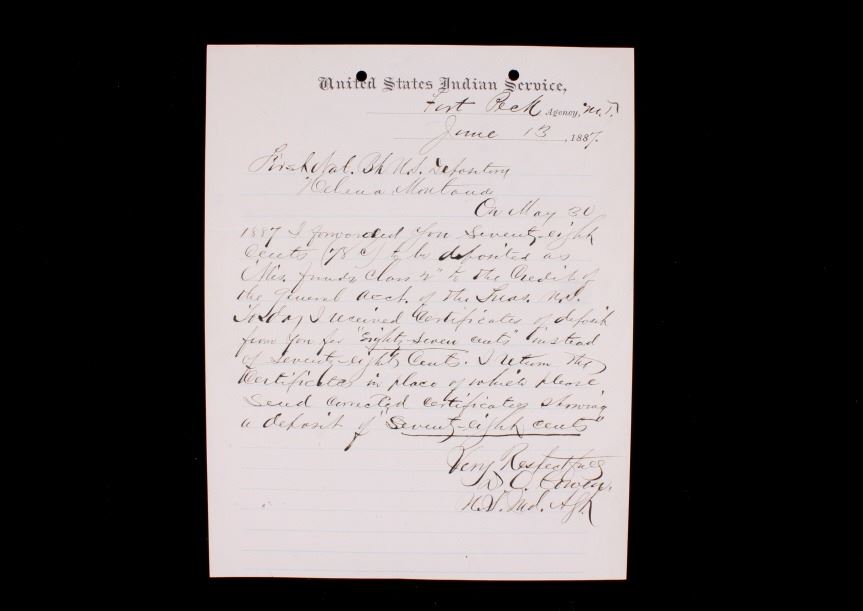 United States Indian Service,
Fort Peck Agency, M.T.
June 13, 1887.
First Nat. Bk U.S. Depository
Helena Montana
On May 30
1887 I forwarded you Seventy-eight
cents (78 c) to be deposited as
"Mis. funds Class 2" to the Credit of
the General acct. of the Treas. U.S.
To day I received Certificates of deposit
from you for "Eighty Seven cents" instead
of Seventy-eight Cents. I return the
Certificates in place of which please
send corrected certificates showing
a deposit of "Seventy-eight cents"
Very Respectfully
D. O. Cowen,
U.S. Ind. Agt.